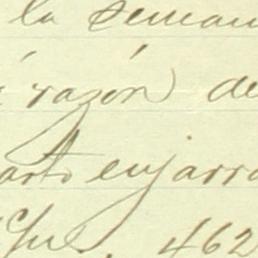 la seman
razón de
arto enjarra
462